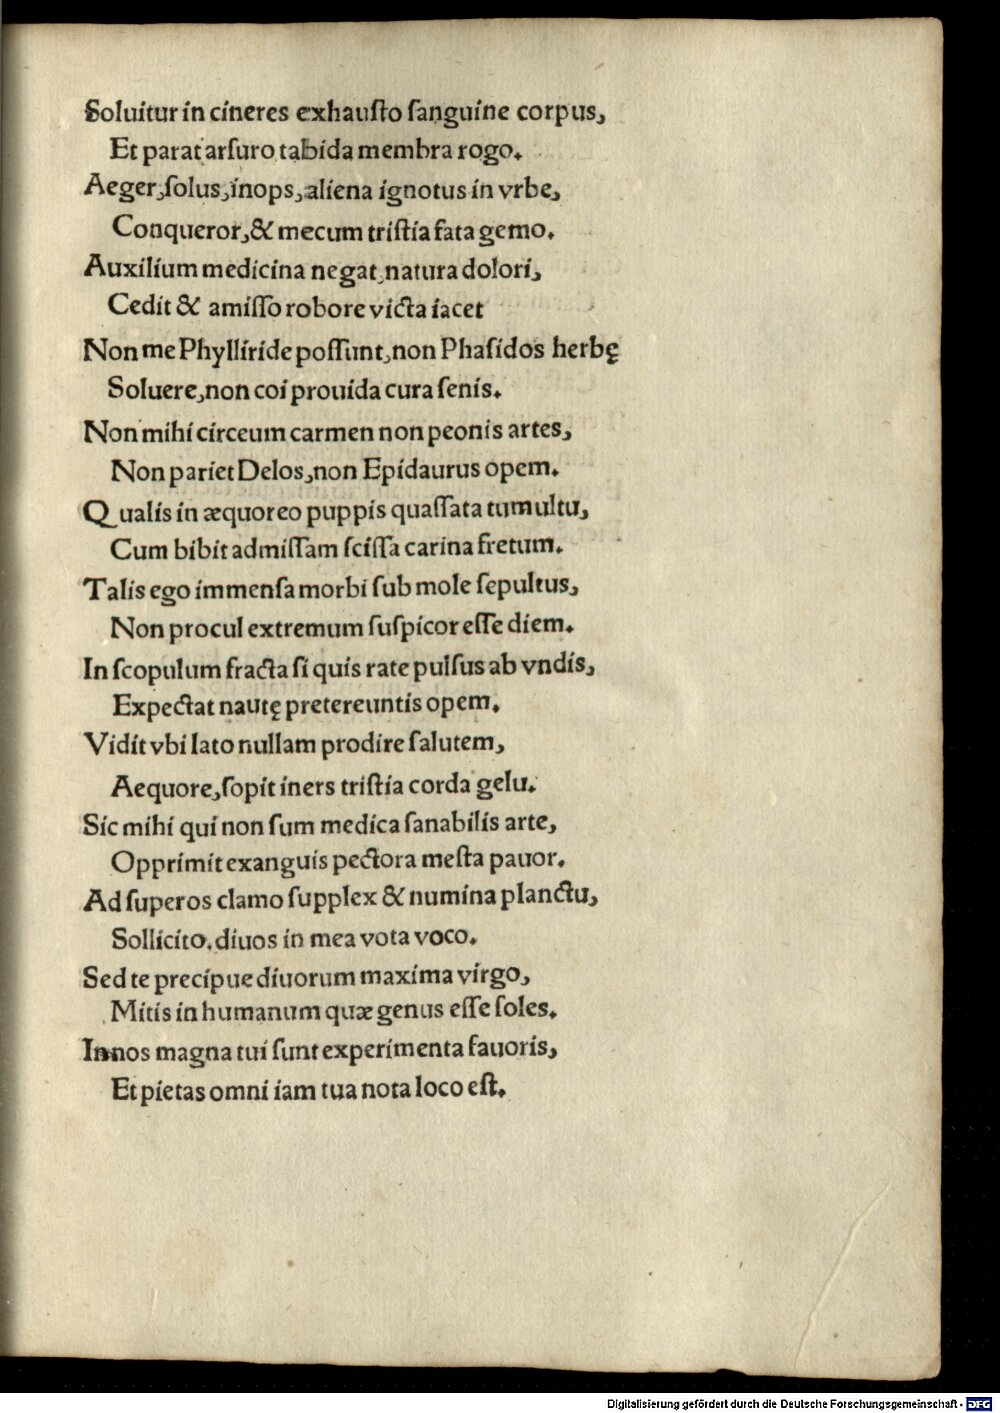 Soluitur in cineres exhausto sanguine corpus,
Et parat arsuro tabida membra rogo.
Aeger, solus, inops, aliena ignotus in vrbe,
Conqueror, & mecum tristia fata gemo.
Auxilium medicina negat, natura dolori,
Cedit & amisso robore victa iacet
Non me Phylliride possunt, non Phasidos herbę
Soluere, non coi prouida cura senis.
Non mihi circeum carmen non peonis artes,
Non pariet Delos, non Epidaurus opem.
Qualis in æquoreo puppis quassata tumultu,
Cum bibit admissam scissa carina fretum.
Talis ego immensa morbi sub mole sepultus,
Non procul extremum suspicor esse diem.
In scopulum fracta si quis rate pulsus ab vndis,
Expectat nautę pretereuntis opem.
Vidit vbi lato nullam prodire salutem,
Aequore, sopit iners tristia corda gelu.
Sic mihi qui non sum medica sanabilis arte,
Opprimit exanguis pectora mesta pauor.
Ad superos clamo supplex & numina planctu,
Sollicito. diuos in mea vota voco.
Sed te precipue diuorum maxima virgo,
Mitis in humanum quæ genus esse soles.
In nos magna tui sunt experimenta fauoris,
Et pietas omni iam tua nota loco est.
Digitalisierung gefördert durch die Deutsche Forschungsgemeinschaft - DFG